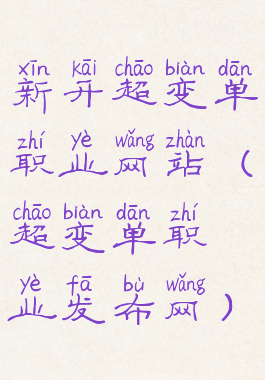 xīn kāi chāo biàn dān
新开超变单
zhí yè wǎng zhàn
职业网站（
chāo biàn dān zhí
超变单职
yè fā bù wǎng
业发布网）